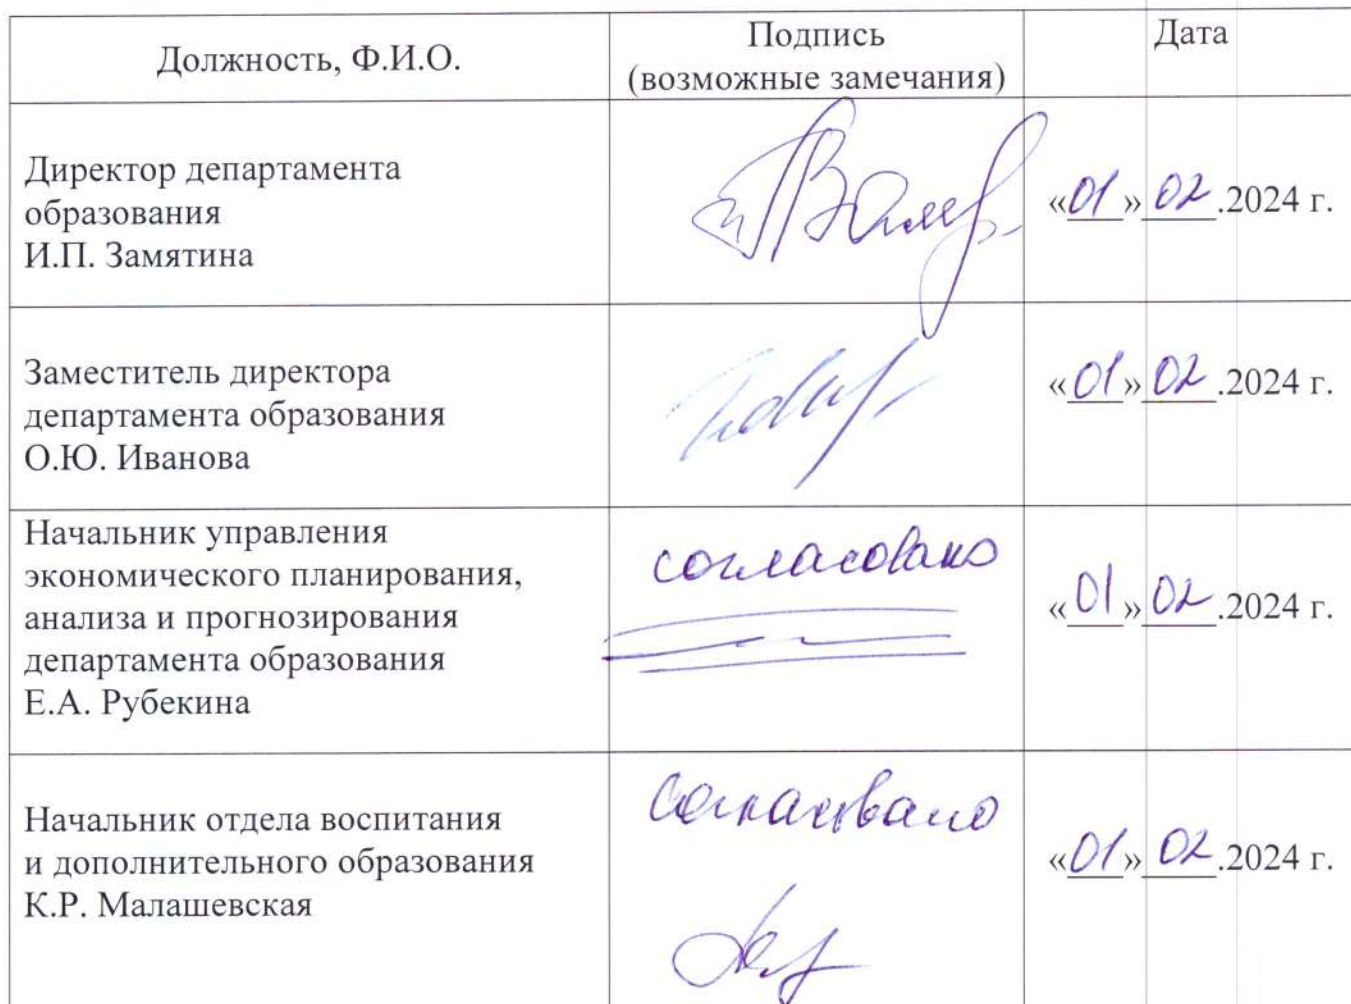 Должность, Ф.И.О.
Подпись
(возможные замечания)
Дата
Директор департамента
образования
И.П. Замятина
«01» 02.2024 г.
Заместитель директора
департамента образования
О.Ю. Иванова
«01» 02.2024 г.
Начальник управления
экономического планирования,
анализа и прогнозирования
департамента образования
Е.А. Рубекина
согласовано
«01» 02.2024 г.
Начальник отдела воспитания
и дополнительного образования
К.Р. Малашевская
Согласовано
«01» 02.2024 г.